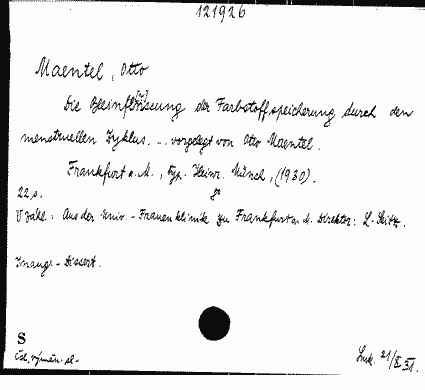 121926
Maentel, Otto
Die Beeinflüssung [u] der Farbstoffspeicherung durch den
menstruellen Zyklus. ... vorgelegt von Otto Maentel.
Frankfurt a. M., typ. Heinr. Münch, (1930).
22 s. 8°
V záhl.: Aus der Univ.-Frauenklinik zu Frankfurt a. M. Direktor: L. Seitz.
Inaug.-Dissert.
S
Čsl. výměn. sl-
Luk. 21/X 31.